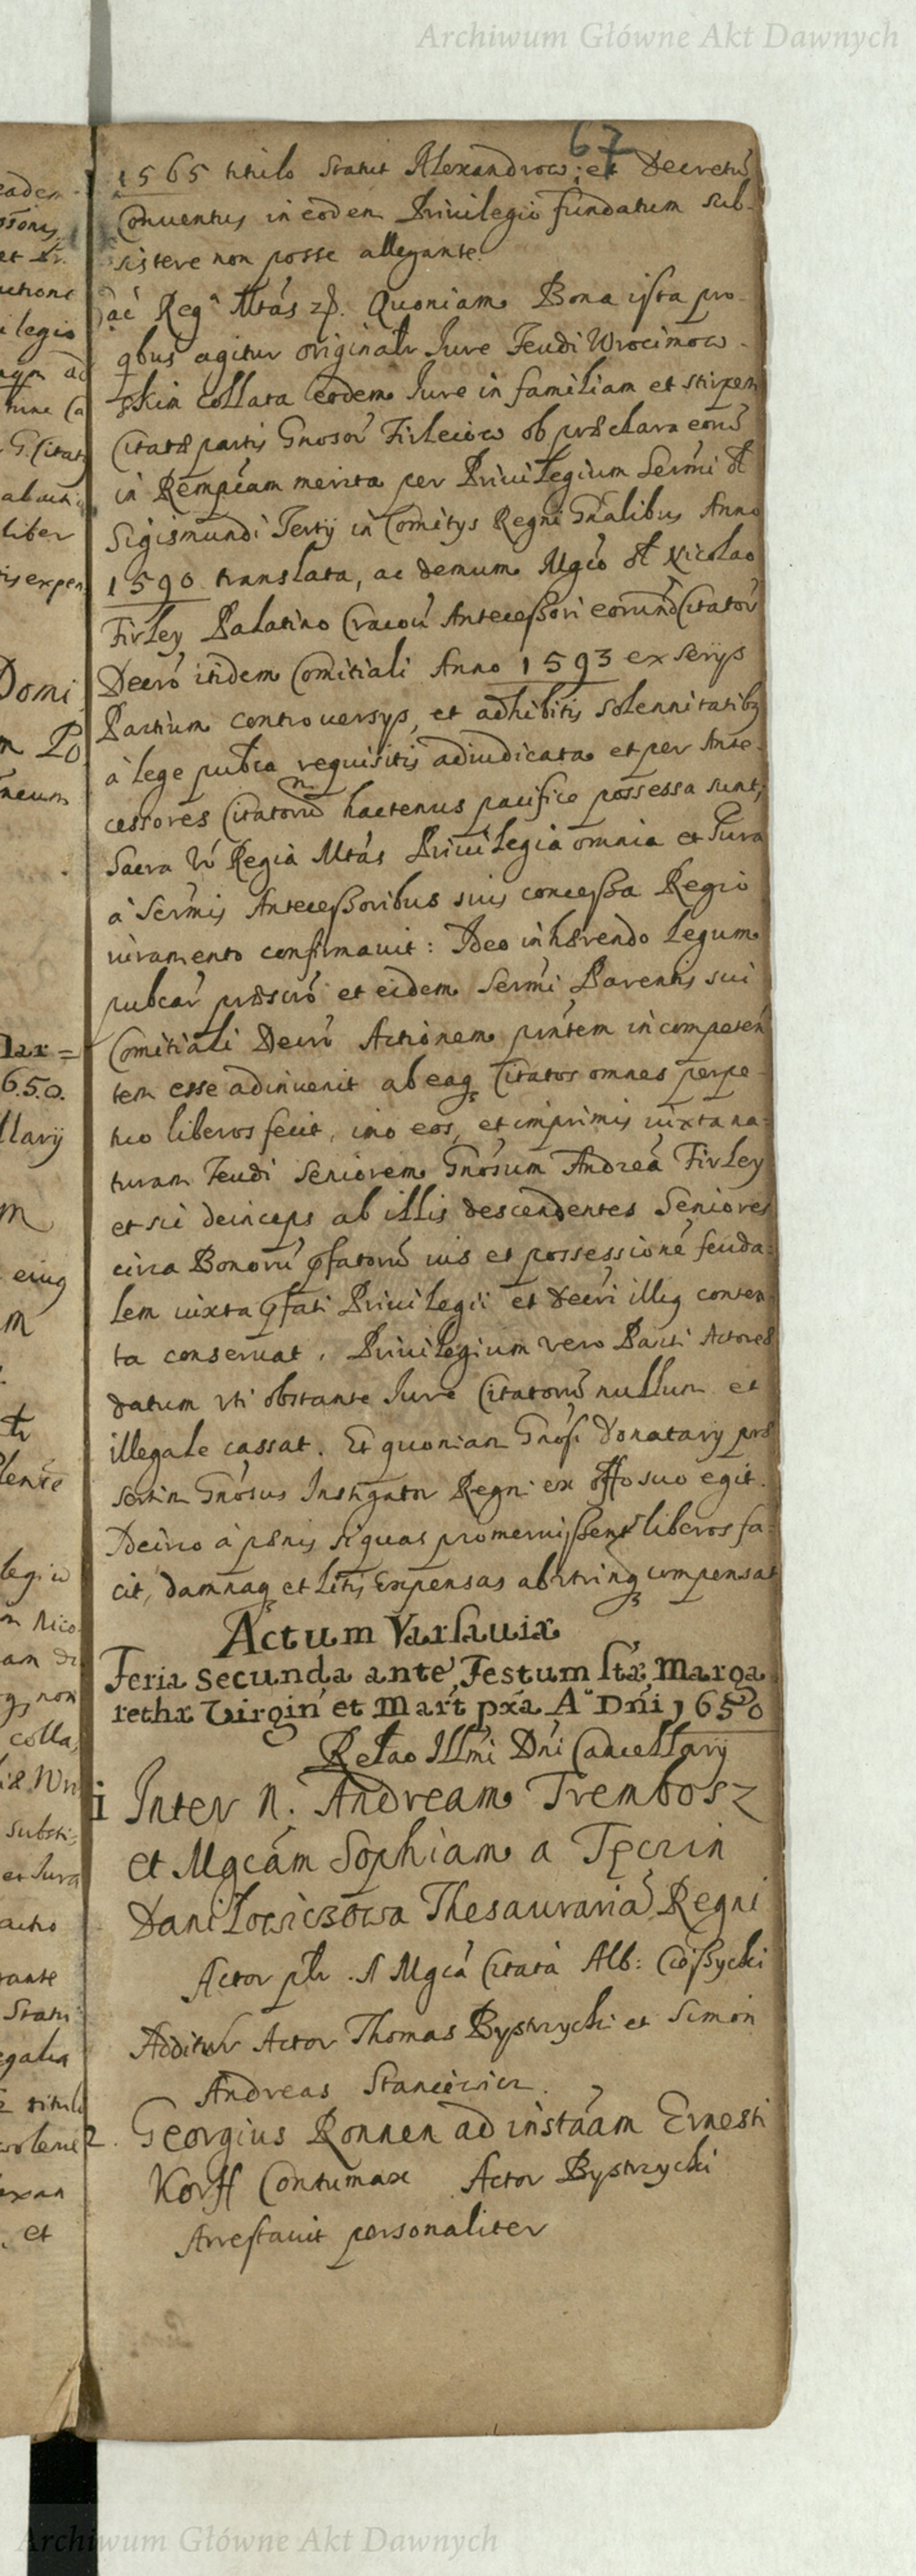 Archiwum Główne Akt Dawnych
67
1565 titulo Statut Alexandrow: et Decretũ
Conuentus in eodem Priuilegio fundatum sub-
sistere non posse allegante.
Regᵃ Mtás Quoniam Bona ista pro
qbus agitur originalr Iure Feudi Wrocimow-
skim collata eodem Iure in familiam et stirpem
Citatæ partis Gnosor̃ Firleiow ob præclara eorũ
in Rempcam merita per Priuilegium Sermi ol
Sigismundi Tertij in Comitijs Regni Gnalibus Anno
1590 translata, ac demum Mgco ol Nicolao
Firley Palatino Cracou Antecessori eorund Citator̃
Decro itidem Comitiali Anno 1593 ex serijs
Partium controuersijs, et adhibitis solennitatibq
à lege pubca requisitis adiudicata et per Ante-
cessores Citatorũ hactenus pacifice possessa sunt,
Sacra v́ Regia Mtás Priuilegia omnia et Iura
à Sermis Antecessoribus suis concessa Regio
iuramento confirmauit: Ideo inhærendo Legum
pubcar̃ præscro et eidem Sermi Parentis sui
Comitiali Decro Actionem pñtem incompeten
tem esse adinuenit ab eaq Citatos omnes perpe-
tuo liberos fecit, imo eos, et imprimis iuxta na-
turam Feudi Seniorem Gnosum Andreã Firley
et sic deinceps ab illis descendentes Seniores
circa Bonorũ pfatorũ ius et possessionẽ feuda-
lem iuxta pfati Priuilegii et Decri illiq conten
ta conseruat. Priuilegium vero Parti Actoreæ
datum vti obstante Iure Citatorũ nullum et
illegale cassat. Et quoniam Gnosi Donatarij præ
sertim Gnosus Instigator Regni ex offo suo egit.
Decirco à pænis siquas promeruissent liberos fa-
cit, damnaq et Litis Expensas abutrinq compensat
Actum Varsauiæ
Feria secunda ante Festum Stæ Marga
rethæ Virgin et Mart pxa A° Dñi 1650
Relao Illmi Dni Cancellarij
1 Inter N. Andream Trembosz
et Mgcám Sophiam a Tęczin
Daniłowiczowa Thesaurariã Regni
Actor ph. A Mgcã Citatà Alb: Ciossycki
Additur Actor Thomas Bystrzycki et Simon
Andreas Stancewicz.
2. Georgius Ronnen ad instãam Ernesti
Korff Contumax Actor Bystrzycki
Arrestauit personaliter
Archiwum Główne Akt Dawnych